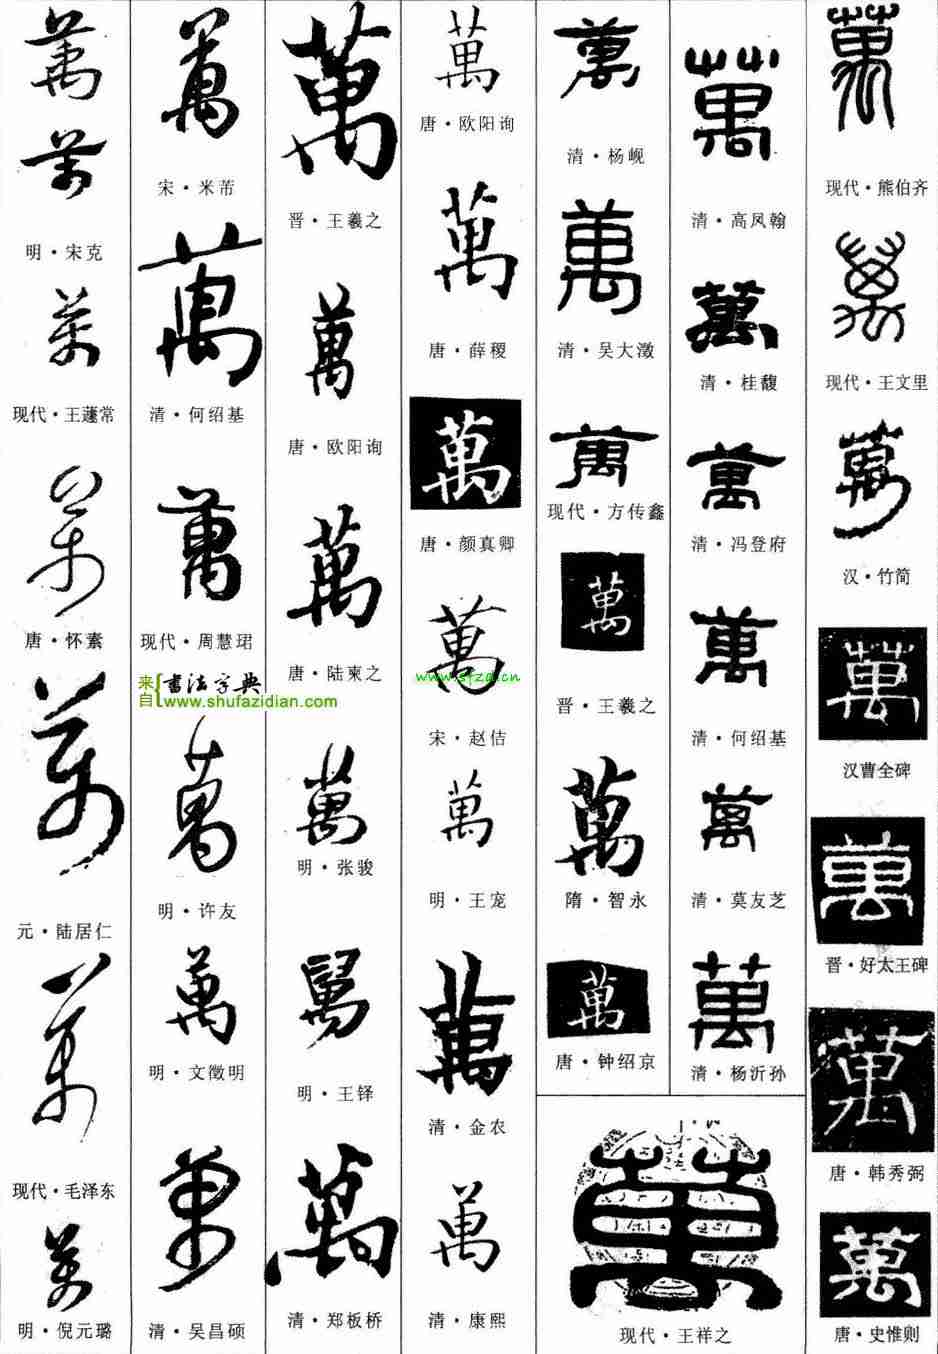 萬
萬
明·宋克
萬
现代·王蘧常
萬
唐·怀素
萬
元·陆居仁
萬
现代·毛泽东
萬
明·倪元璐
萬
宋·米芾
萬
清·何绍基
萬
现代·周慧珺
来自 书法字典
www.shufazidian.com
萬
明·许友
萬
明·文徵明
萬
清·吴昌硕
萬
晋·王羲之
萬
唐·欧阳询
萬
唐·陆柬之
萬
明·张骏
萬
明·王铎
萬
清·郑板桥
萬
唐·欧阳询
萬
唐·薛稷
萬
唐·颜真卿
萬
www.sfzd.cn
宋·赵佶
萬
明·王宠
萬
清·金农
萬
清·康熙
萬
清·杨岘
萬
清·吴大澂
萬
现代·方传鑫
萬
晋·王羲之
萬
隋·智永
萬
唐·钟绍京
萬
清·高凤翰
萬
清·桂馥
萬
清·冯登府
萬
清·何绍基
萬
清·莫友芝
萬
清·杨沂孙
萬
现代·王祥之
萬
现代·熊伯齐
萬
现代·王文里
萬
汉·竹简
萬
汉曹全碑
萬
晋·好太王碑
萬
唐·韩秀弼
萬
唐·史惟则